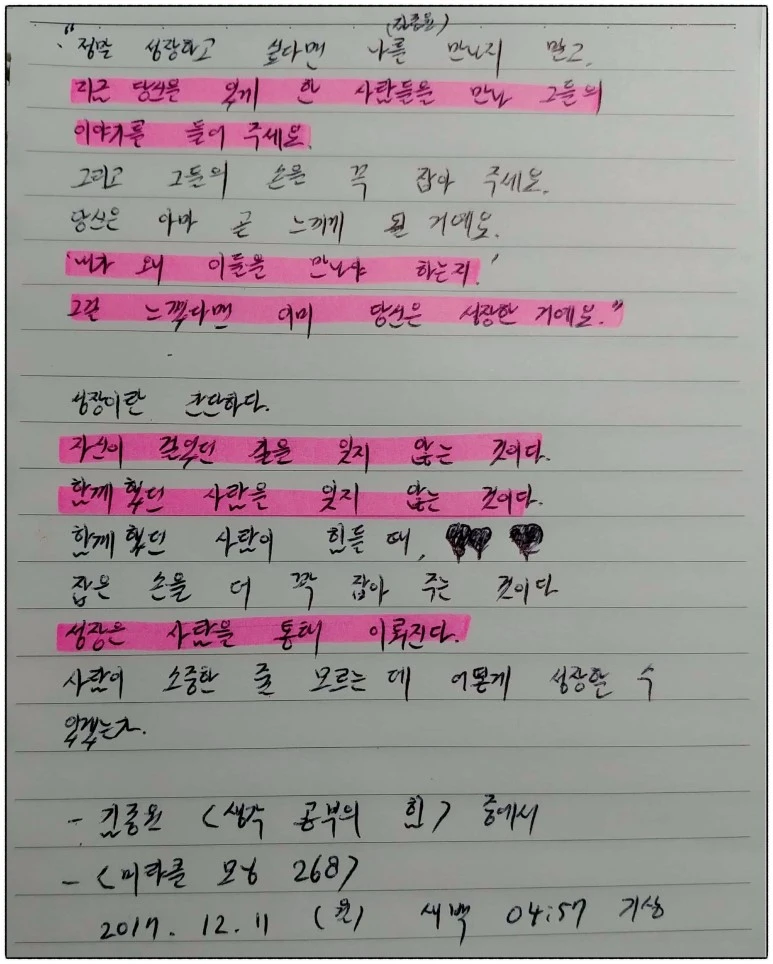 (김종원)
"정말 성장하고 싶다면 나를 만나지 말고,
지금 당신을 있게 한 사람들을 만나 그들의
이야기를 들어 주세요.
그리고 그들의 손을 꼭 잡아 주세요.
당신은 아마 곧 느끼게 될 거예요.
'내가 왜 이들을 만나야 하는지.'
그걸 느꼈다면 이미 당신은 성장한 거예요."
성장이란 간단하다.
자신이 걸었던 길을 잊지 않는 것이다.
함께 했던 사람을 잊지 않는 것이다.
함께 했던 사람이 힘들 때,
잡은 손을 더 꽉 잡아 주는 것이다
성장은 사람을 통해 이뤄진다.
사람이 소중한 줄 모르는 데 어떻게 성장할 수
있겠는가.
- 김종원 <생각 공부의 힘> 중에서
- <미라클 모닝 268>
2017. 12. 11 (월) 새벽 04:57 기상